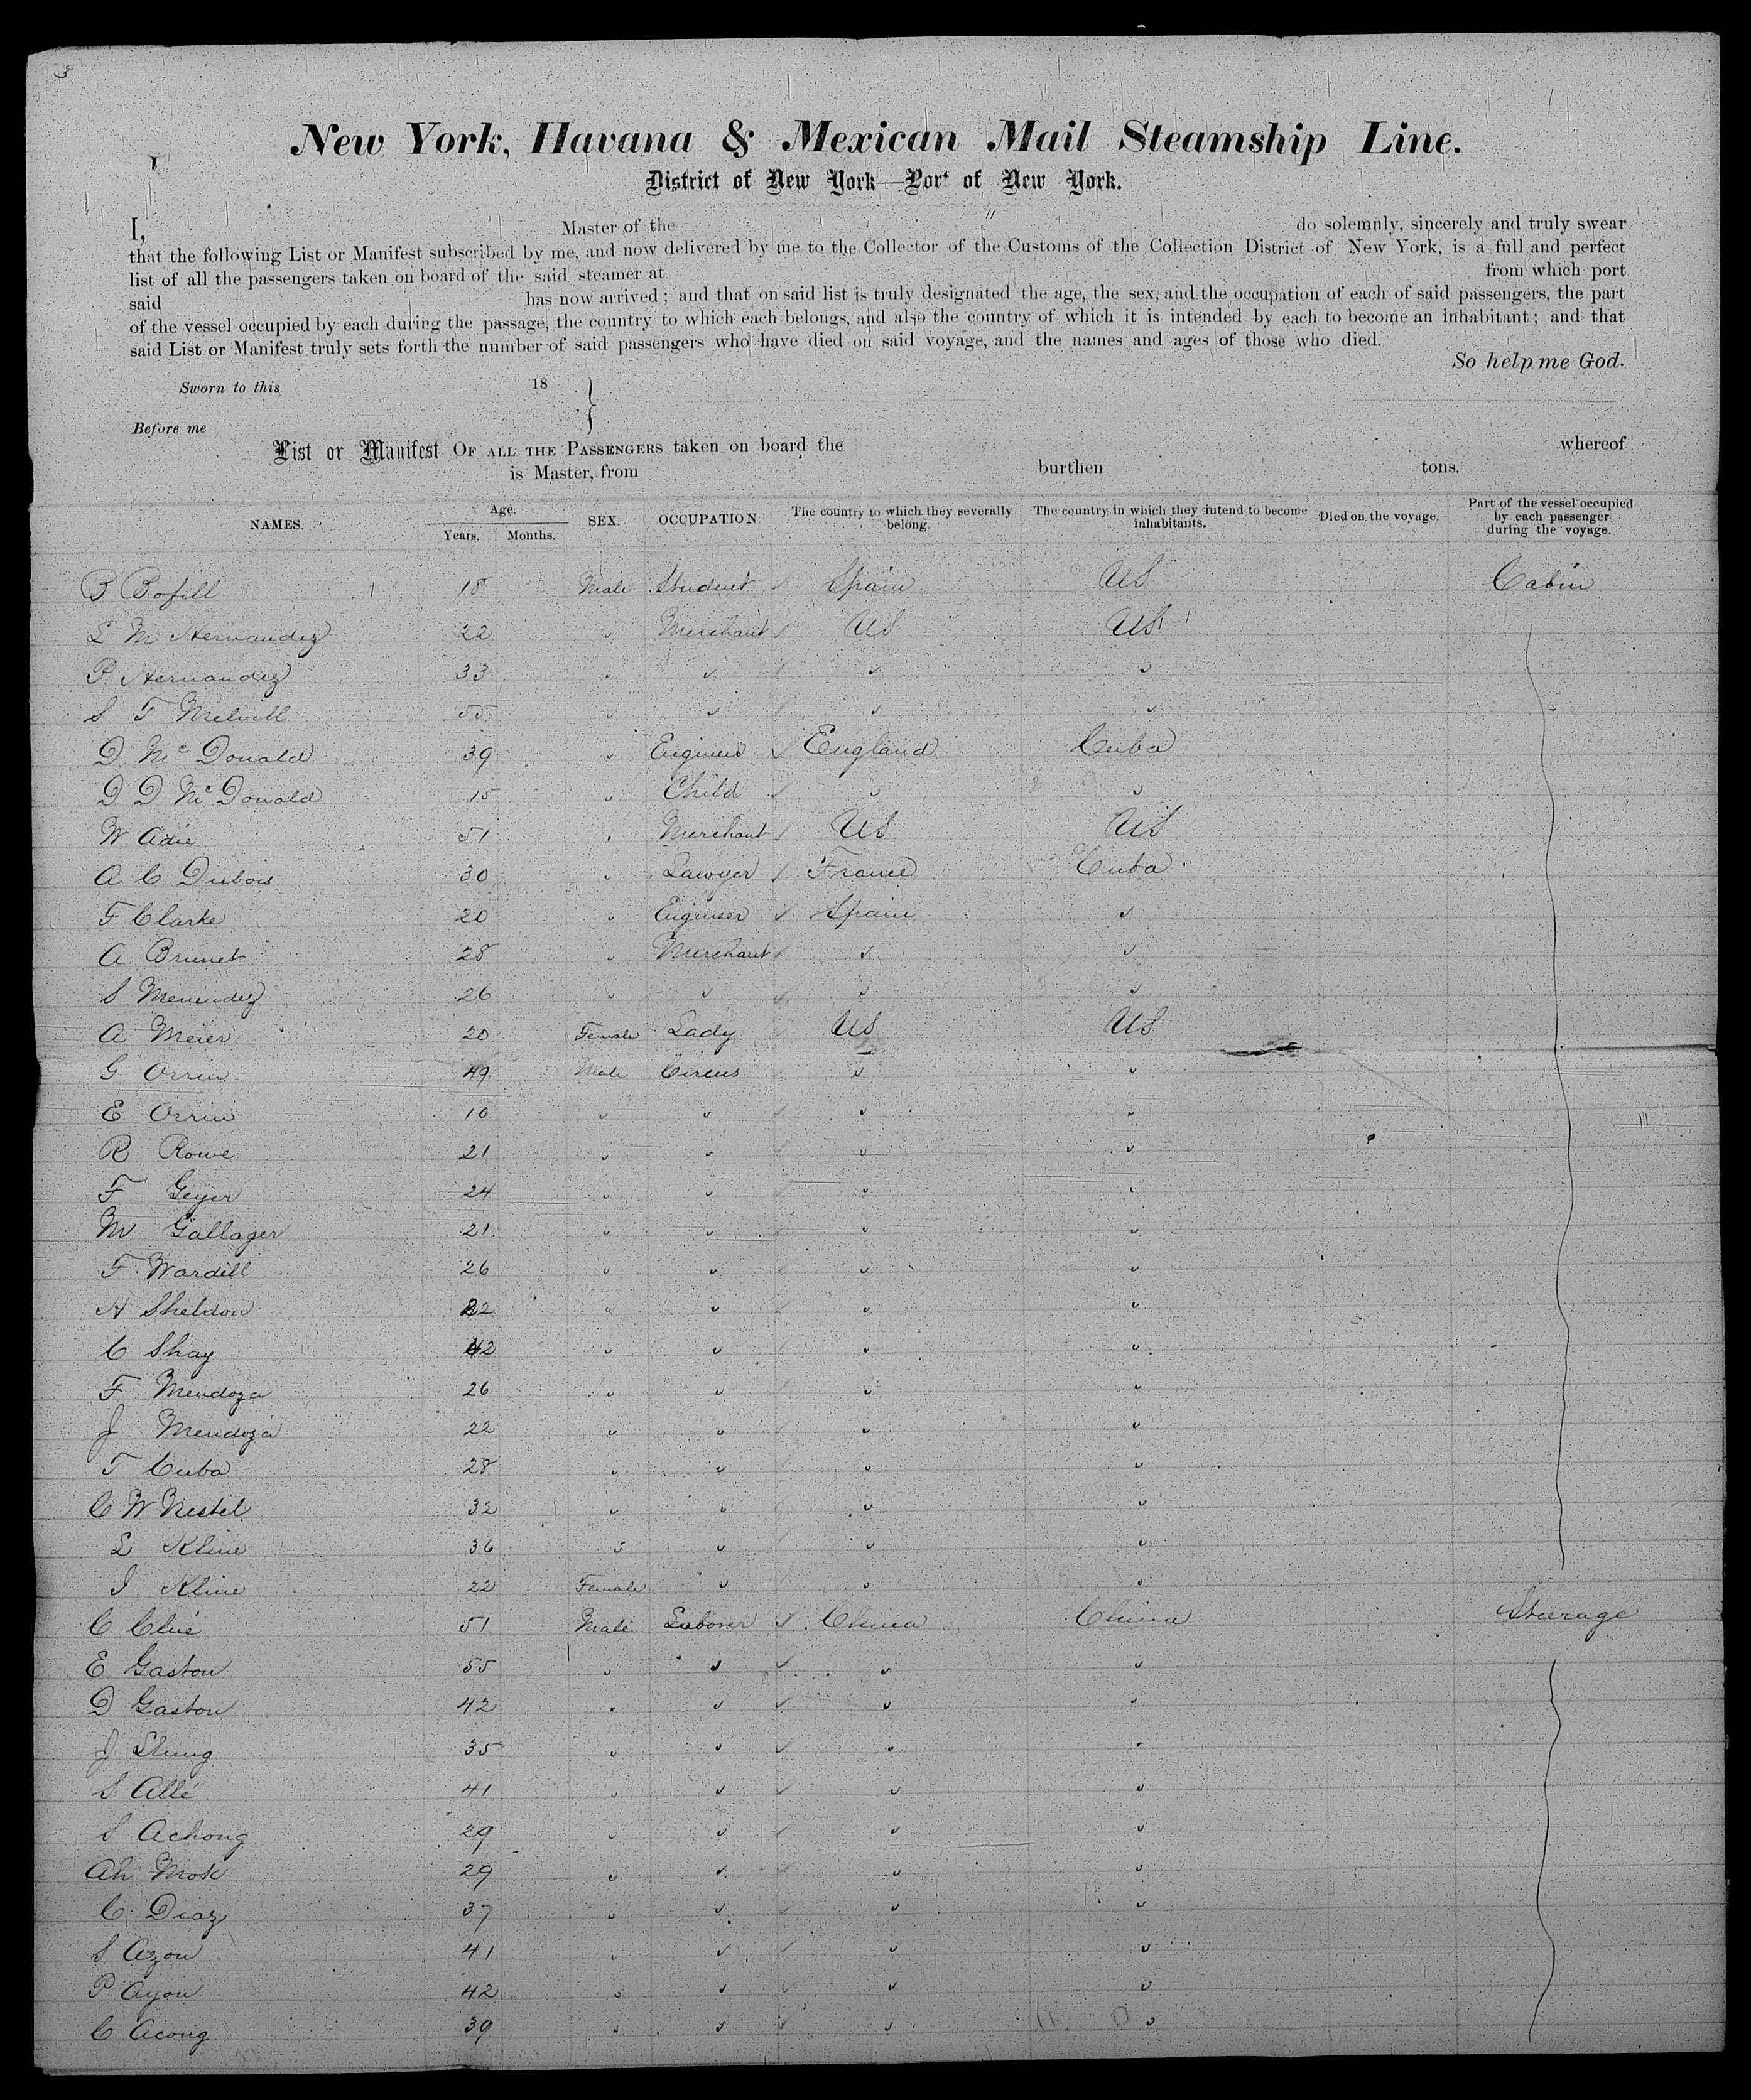 New York, Havana & Mexican Mail Steamship Line.
District of New York—Port of New York.
I, Master of the " do solemnly, sincerely and truly swear
that the following List or Manifest subscribed by me, and now delivered by me to the Collector of the Customs of the Collection District of New York, is a full and perfect
list of all the passengers taken on board of the said steamer at from which port
said has now arrived; and that on said list is truly designated the age, the sex, and the occupation of each of said passengers, the part
of the vessel occupied by each during the passage, the country to which each belongs, and also the country of which it is intended by each to become an inhabitant; and that
said List or Manifest truly sets forth the number of said passengers who have died on said voyage, and the names and ages of those who died.
So help me God.
Sworn to this 18
Before me
List or Manifest OF ALL THE PASSENGERS taken on board the whereof
is Master, from burthen tons.
NAMES. Age. Years. Months. SEX. OCCUPATION. The country to which they severally belong. The country in which they intend to become inhabitants. Died on the voyage. Part of the vessel occupied by each passenger during the voyage.
B Bofill 18 Male Student Spain US Cabin
L M Hernandez 22 " Merchant US US
P Hernandez 33 " " " "
S T Melvill 55 " " " "
D Mc Donald 39 " Engineer England Cuba
D D Mc Donald 15 " Child " "
W Adie 51 " Merchant US US
A C Dubois 30 " Lawyer France Cuba
F Clarke 20 " Engineer Spain "
A Brunet 28 " Merchant " "
S Menendez 26 " " " "
A Meier 20 Female Lady US US
G Orrin 49 Male Circus " "
E Orrin 10 " " " "
R Rowe 21 " " " "
F Geyer 24 " " " "
M Gallager 21 " " " "
F Wardill 26 " " " "
H Sheldon 22 " " " "
C Shay 42 " " " "
F Mendoza 26 " " " "
J Mendoza 22 " " " "
T Cuba 28 " " " "
C W Nestel 32 " " " "
L Kline 36 " " " "
I Kline 22 Female " " "
C Clué 51 Male Laborer China China Steerage
E Gaston 55 " " " "
D Gaston 42 " " " "
J 35 " " " "
S Allé 41 " " " "
S Achong 29 " " " "
Ah Mok 29 " " " "
C Diaz 37 " " " "
S Azon 41 " " " "
P Ayon 42 " " " "
C Acong 39 " " " "